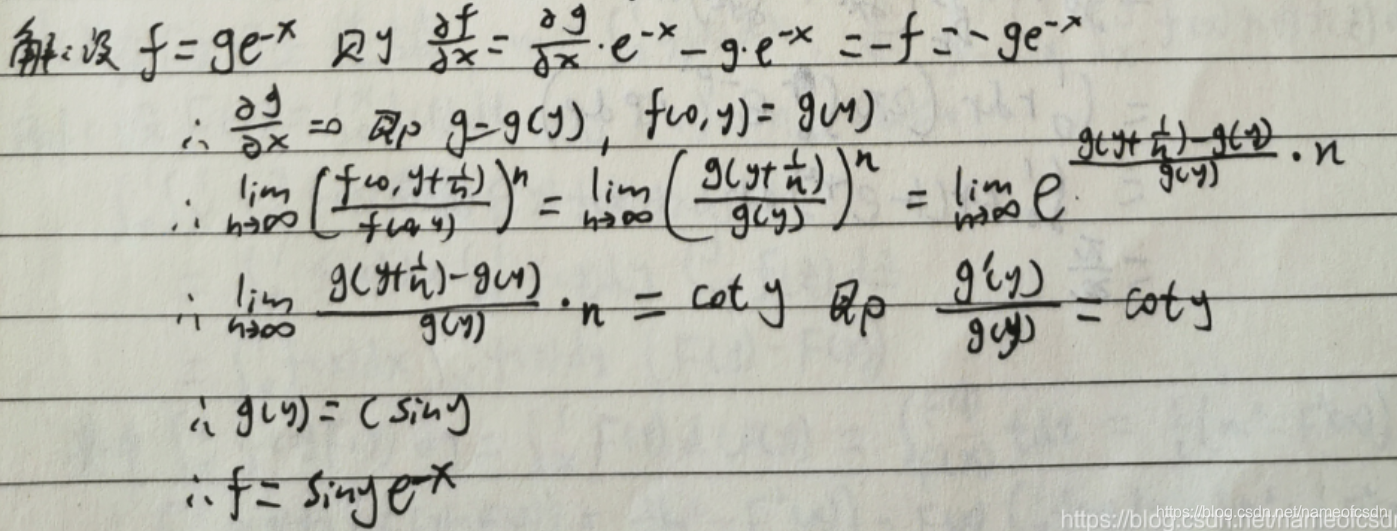 解:设 f=ge^{-x} 则 ∂f/∂x = ∂g/∂x·e^{-x} - g·e^{-x} = -f = -ge^{-x}
∴ ∂g/∂x =0 即 g=g(y), f(0,y)=g(y)
∴ lim_{n→∞} (f(0,y+1/n)/f(0,y))^n = lim_{n→∞} (g(y+1/n)/g(y))^n = lim_{n→∞} e^{(g(y+1/n)-g(y))/g(y)·n}
∴ lim_{n→∞} (g(y+1/n)-g(y))/g(y)·n = cot y 即 g'(y)/g(y) = cot y
∴ g(y)=C siny
∴ f= siny e^{-x}
https://blog.csdn.net/nameofcsdn
https://blog.csdn.net/nameofcsdn